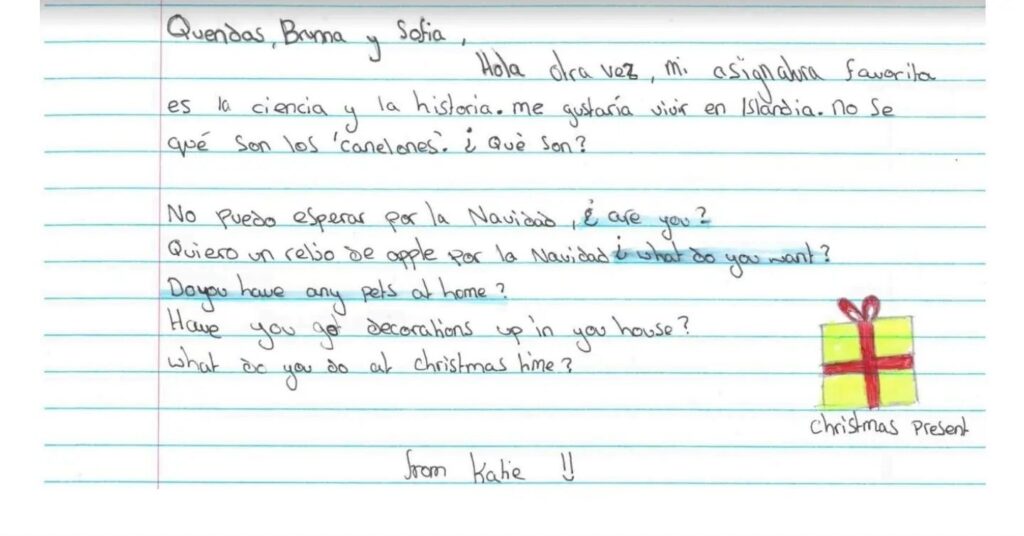 Quendas, Bruna y Sofia,
Hola otra vez, mi asignatura favorita
es la ciencia y la historia. me gustaría vivir en Islandia. no se
qué son los 'canelones'. ¿Què son?
No puedo esperar por la Navidad, ¿ are you?
Quiero un reljo de apple por la Navidad ¿ what do you want?
Do you have any pets at home?
Have you got decorations up in you house?
what do you do at christmas time?
christmas present
from Katie !!